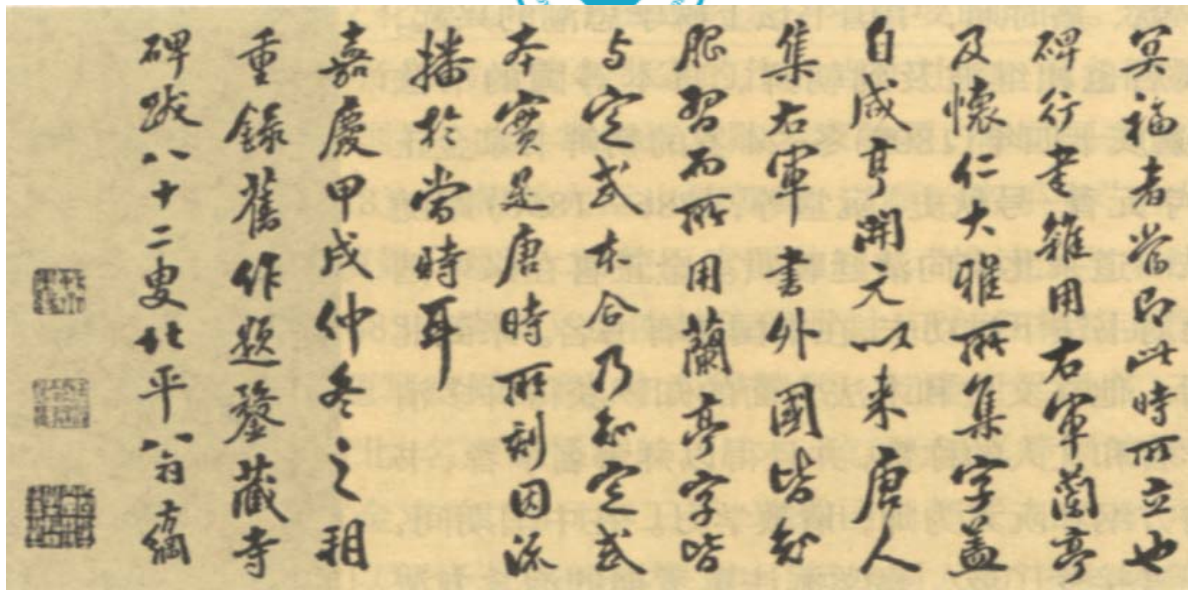 冥福者當即此時所立也
碑行書雜用右軍蘭亭
及懷仁大雅所集字蓋
自咸亨開元以来唐人
集右軍書外國皆知
服習而所用蘭亭字皆
与定武本合乃知定武
本實是唐時所刻因流
播於當時耳
嘉慶甲戌仲冬之
重錄舊作題鍪藏寺
碑跋八十二叟北平翁方綱